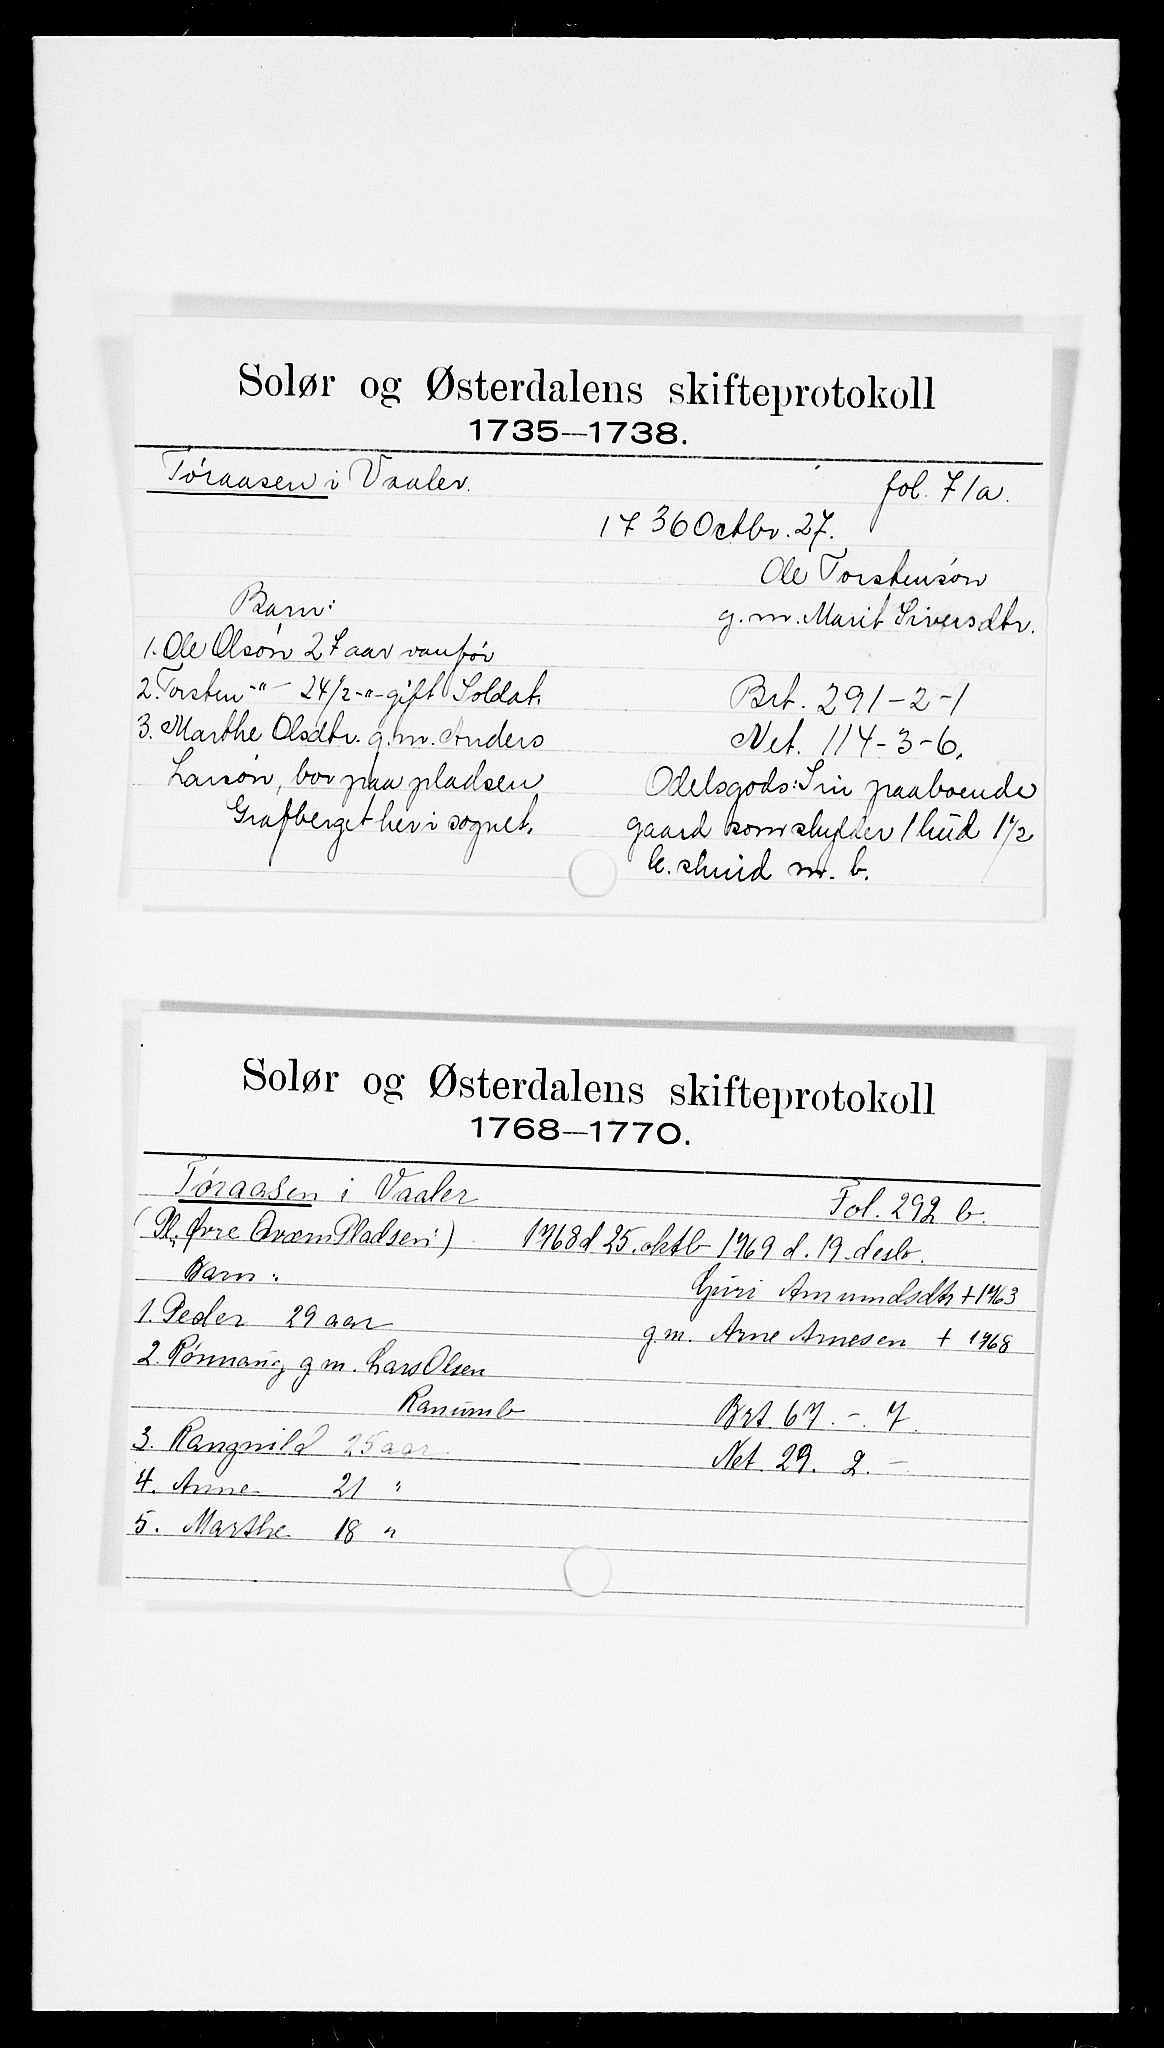 Solør og Østerdalens skifteprotokoll
1735—1738.
Toraasen i Vaaler. fol. 71a.
1736 Octbr. 27.
Ole Torstensøn
g. m. Marit Siversdtr.
Barn:
1. Ole Olsøn 27 aar vanfør
2. Torsten -"- 24 1/2 -"- gift Soldat.
3. Marthe Olsdtr. g. m. Anders
Larsøn, bor paa pladsen
Grafberget her i sognet.
Brt. 291-2-1
Net. 114-3-6.
Odelsgods: Sin paaboende
gaard som skylder 1 hud 1 1/2
le. skind m. b.
Solør og Østerdalens skifteprotokoll
1768—1770.
Toraasen i Vaaler Fol. 292 b.
(Pl. Øvre Qværn Pladsen:) 1768 d 25. oktb 1769 d. 19. desb.
Guri Amundsdtr + 1763
g. m. Arne Arnesen + 1768
Barn:
1. Peder 29 aar
2. Rønnaug g m. Lars Olsen
Ranumb
3. Rangnild 25 aar
4. Anne 21 "
5. Marthe 18 "
Brt. 67. -. 7.
Net. 29. 2. -